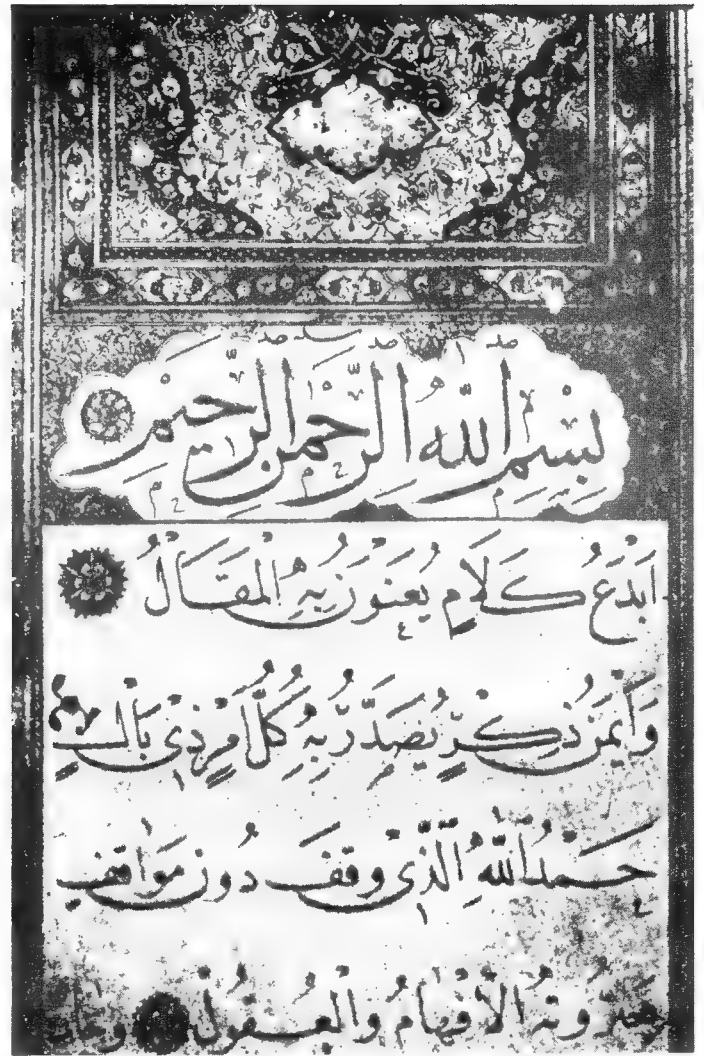 بِسْمِ اللّٰهِ الرَّحْمٰنِ الرَّحِيْمِ
اَبْدَعُ كَلَامٍ يُعَنْوَنُ بِهِ الْمَقَالُ
وَاَيْمَنُ ذِكْرٍ يُصَدَّرُ بِهِ كُلُّ اَمْرٍ ذِيْ بَالٍ
حَمْدُ اللّٰهِ الَّذِيْ وَقَفَ دُوْنَ مَوَاقِفِ
الْاَفْهَامُ وَالْعُقُوْلُ